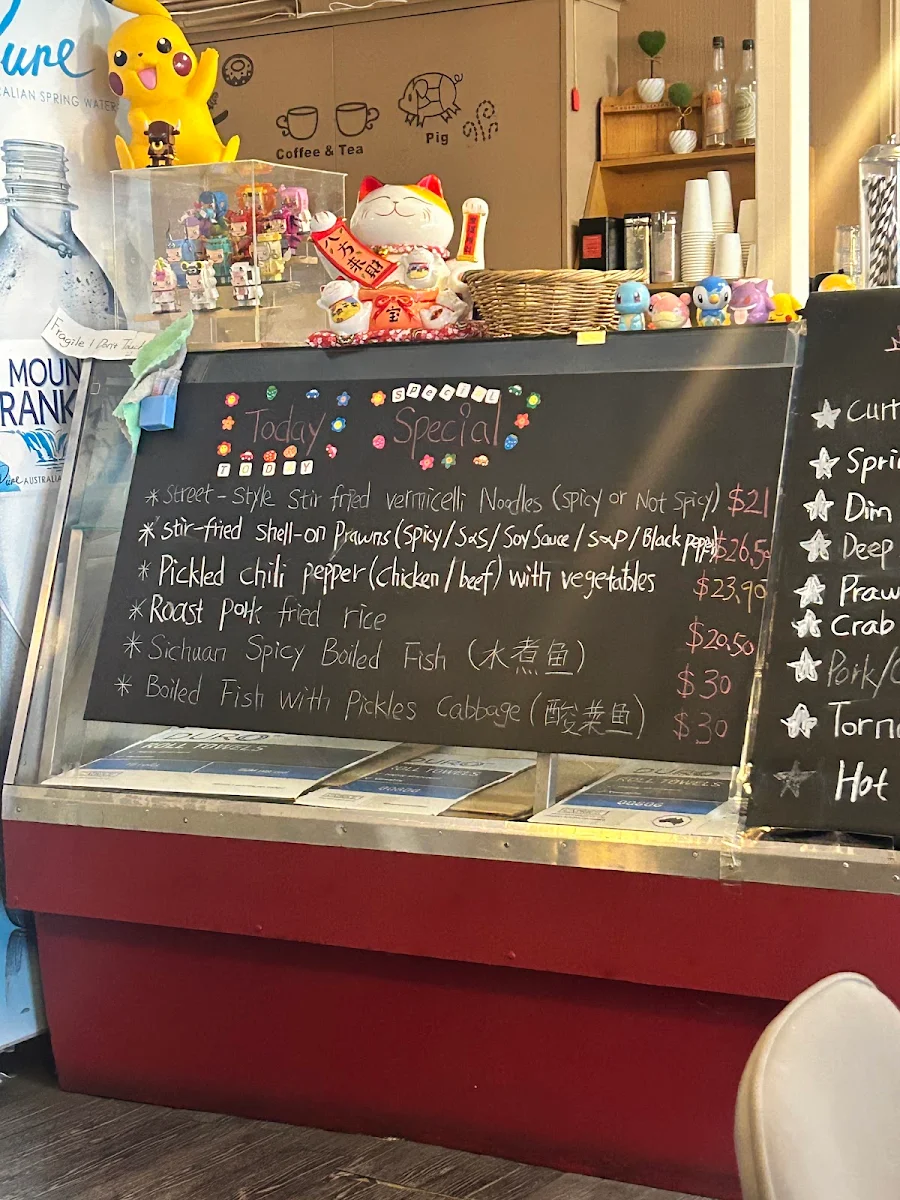 Pure
ALIAN SPRING WATER
Coffee & Tea
Pig
八方来财
Fragile! Don't Touch
MOUN
RANK
AUSTRALIA
SPECiAL
Today Special
TODAY
* Street-Style Stir fried vermicelli Noodles (spicy or Not Spicy) $21
* Stir-fried shell-on Prawns (spicy/S&S/Soy Sauce/S&P/Black pepper) $26.5
* Pickled chili pepper (chicken/beef) with vegetables $23.90
* Roast pork fried rice $20.50
* Sichuan Spicy Boiled Fish (水煮鱼) $30
* Boiled Fish with Pickles Cabbage (酸菜鱼) $30
Curt
Sprin
Dim
Deep
Praw
Crab
Pork/C
Torn
Hot
DURO
ROLL TOWELS
ROLL TOWELS
ROLL TOWELS